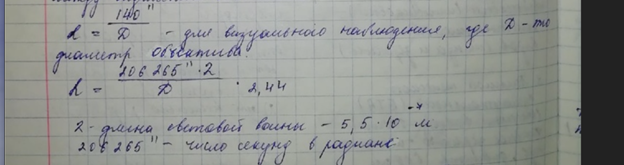 α = 140" / D - для визуального наблюдения, где D - это
диаметр объектива.
α = 206 265" · λ / D · 2,44
λ - длина световой волны - 5,5 · 10⁻⁷ м
206 265" - число секунд в радиане